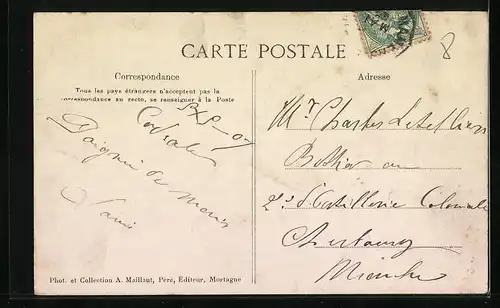 CARTE POSTALE
Correspondance
Tous les pays étrangers n'acceptent pas la
correspondance au recto, se renseigner à la Poste
Poignée de Main
Adresse
Mr Charles Letellier
2e d'artillerie Coloniale
Cherbourg
Manche
8
Phot. et Collection A. Maillaut, Père, Éditeur, Mortagne